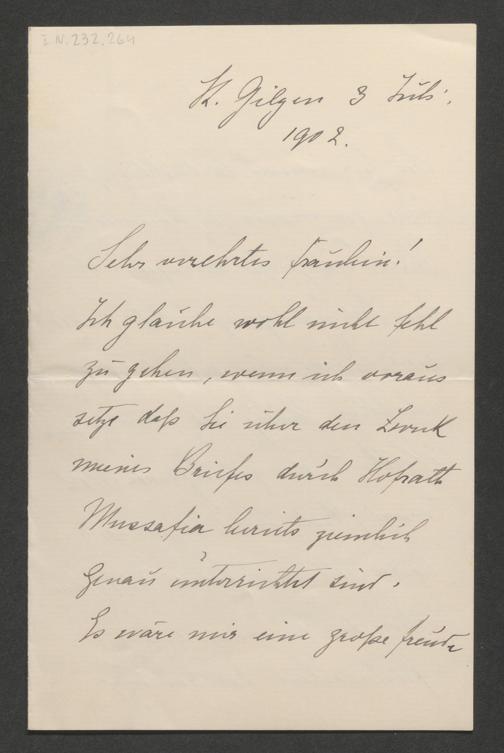 I.N. 232.264
St. Gilgen 3 Juli.
1902.
Sehr verehrtes Fräulein!
Ich glaube wohl nicht fehl
zu gehen, wenn ich voraus
setze daß Sie über den Zweck
meines Briefes durch Hofrath
Mussafia bereits ziemlich
genau unterrichtet sind.
Es wäre mir eine große Freude